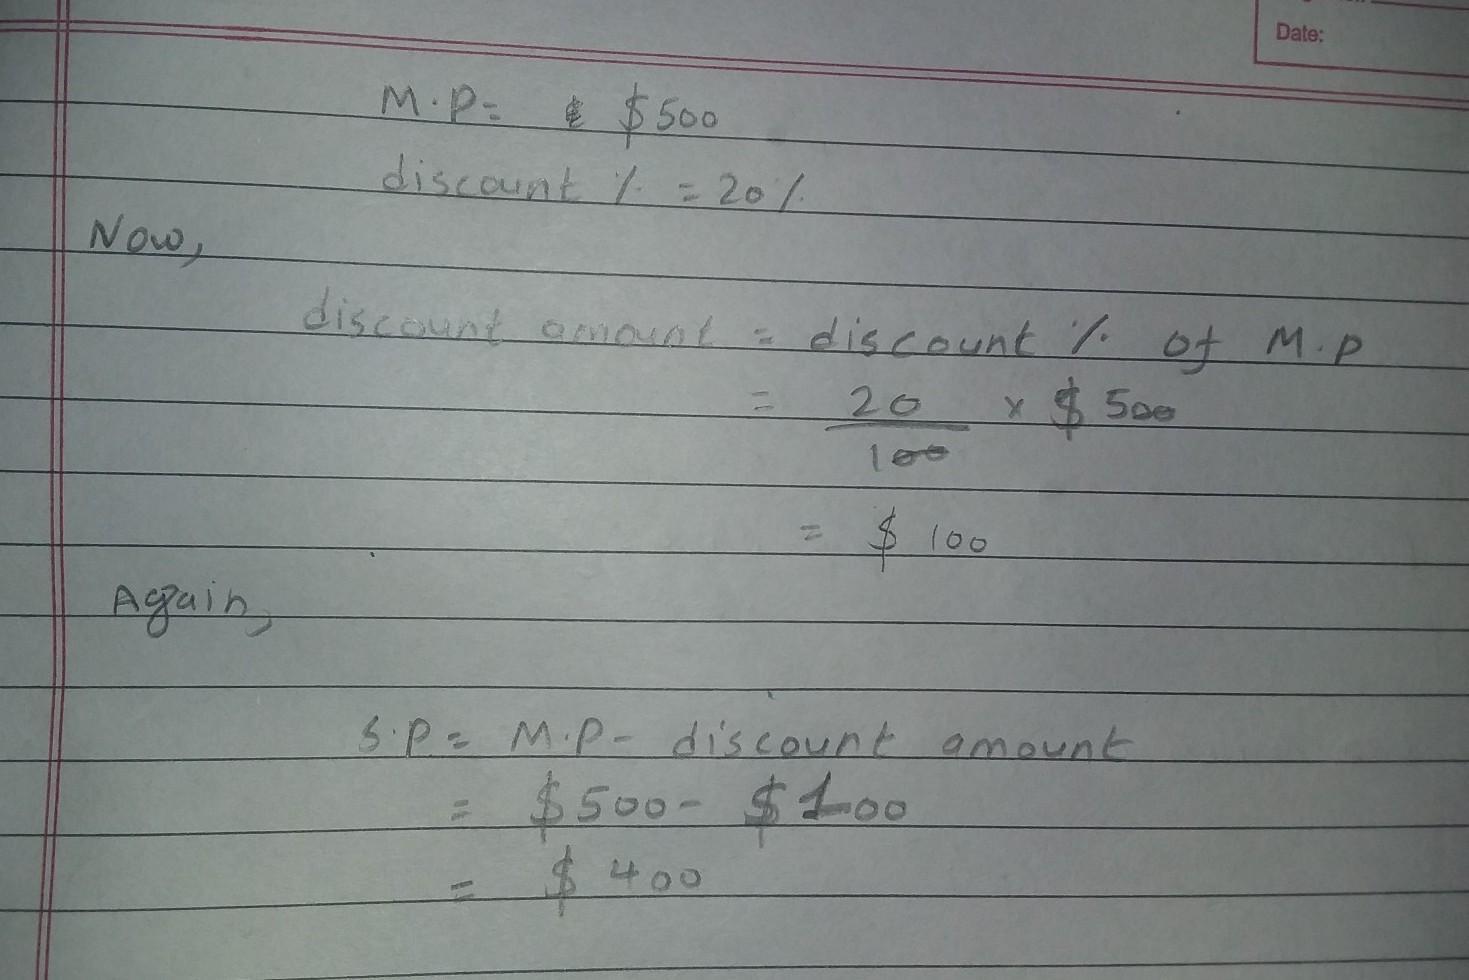 Date:
M.P= $500
discount % = 20%
Now,
discount amount = discount % of M.P
= 20/100 x $ 500
= $ 100
Again,
S.P = M.P - discount amount
= $500 - $100
= $ 400